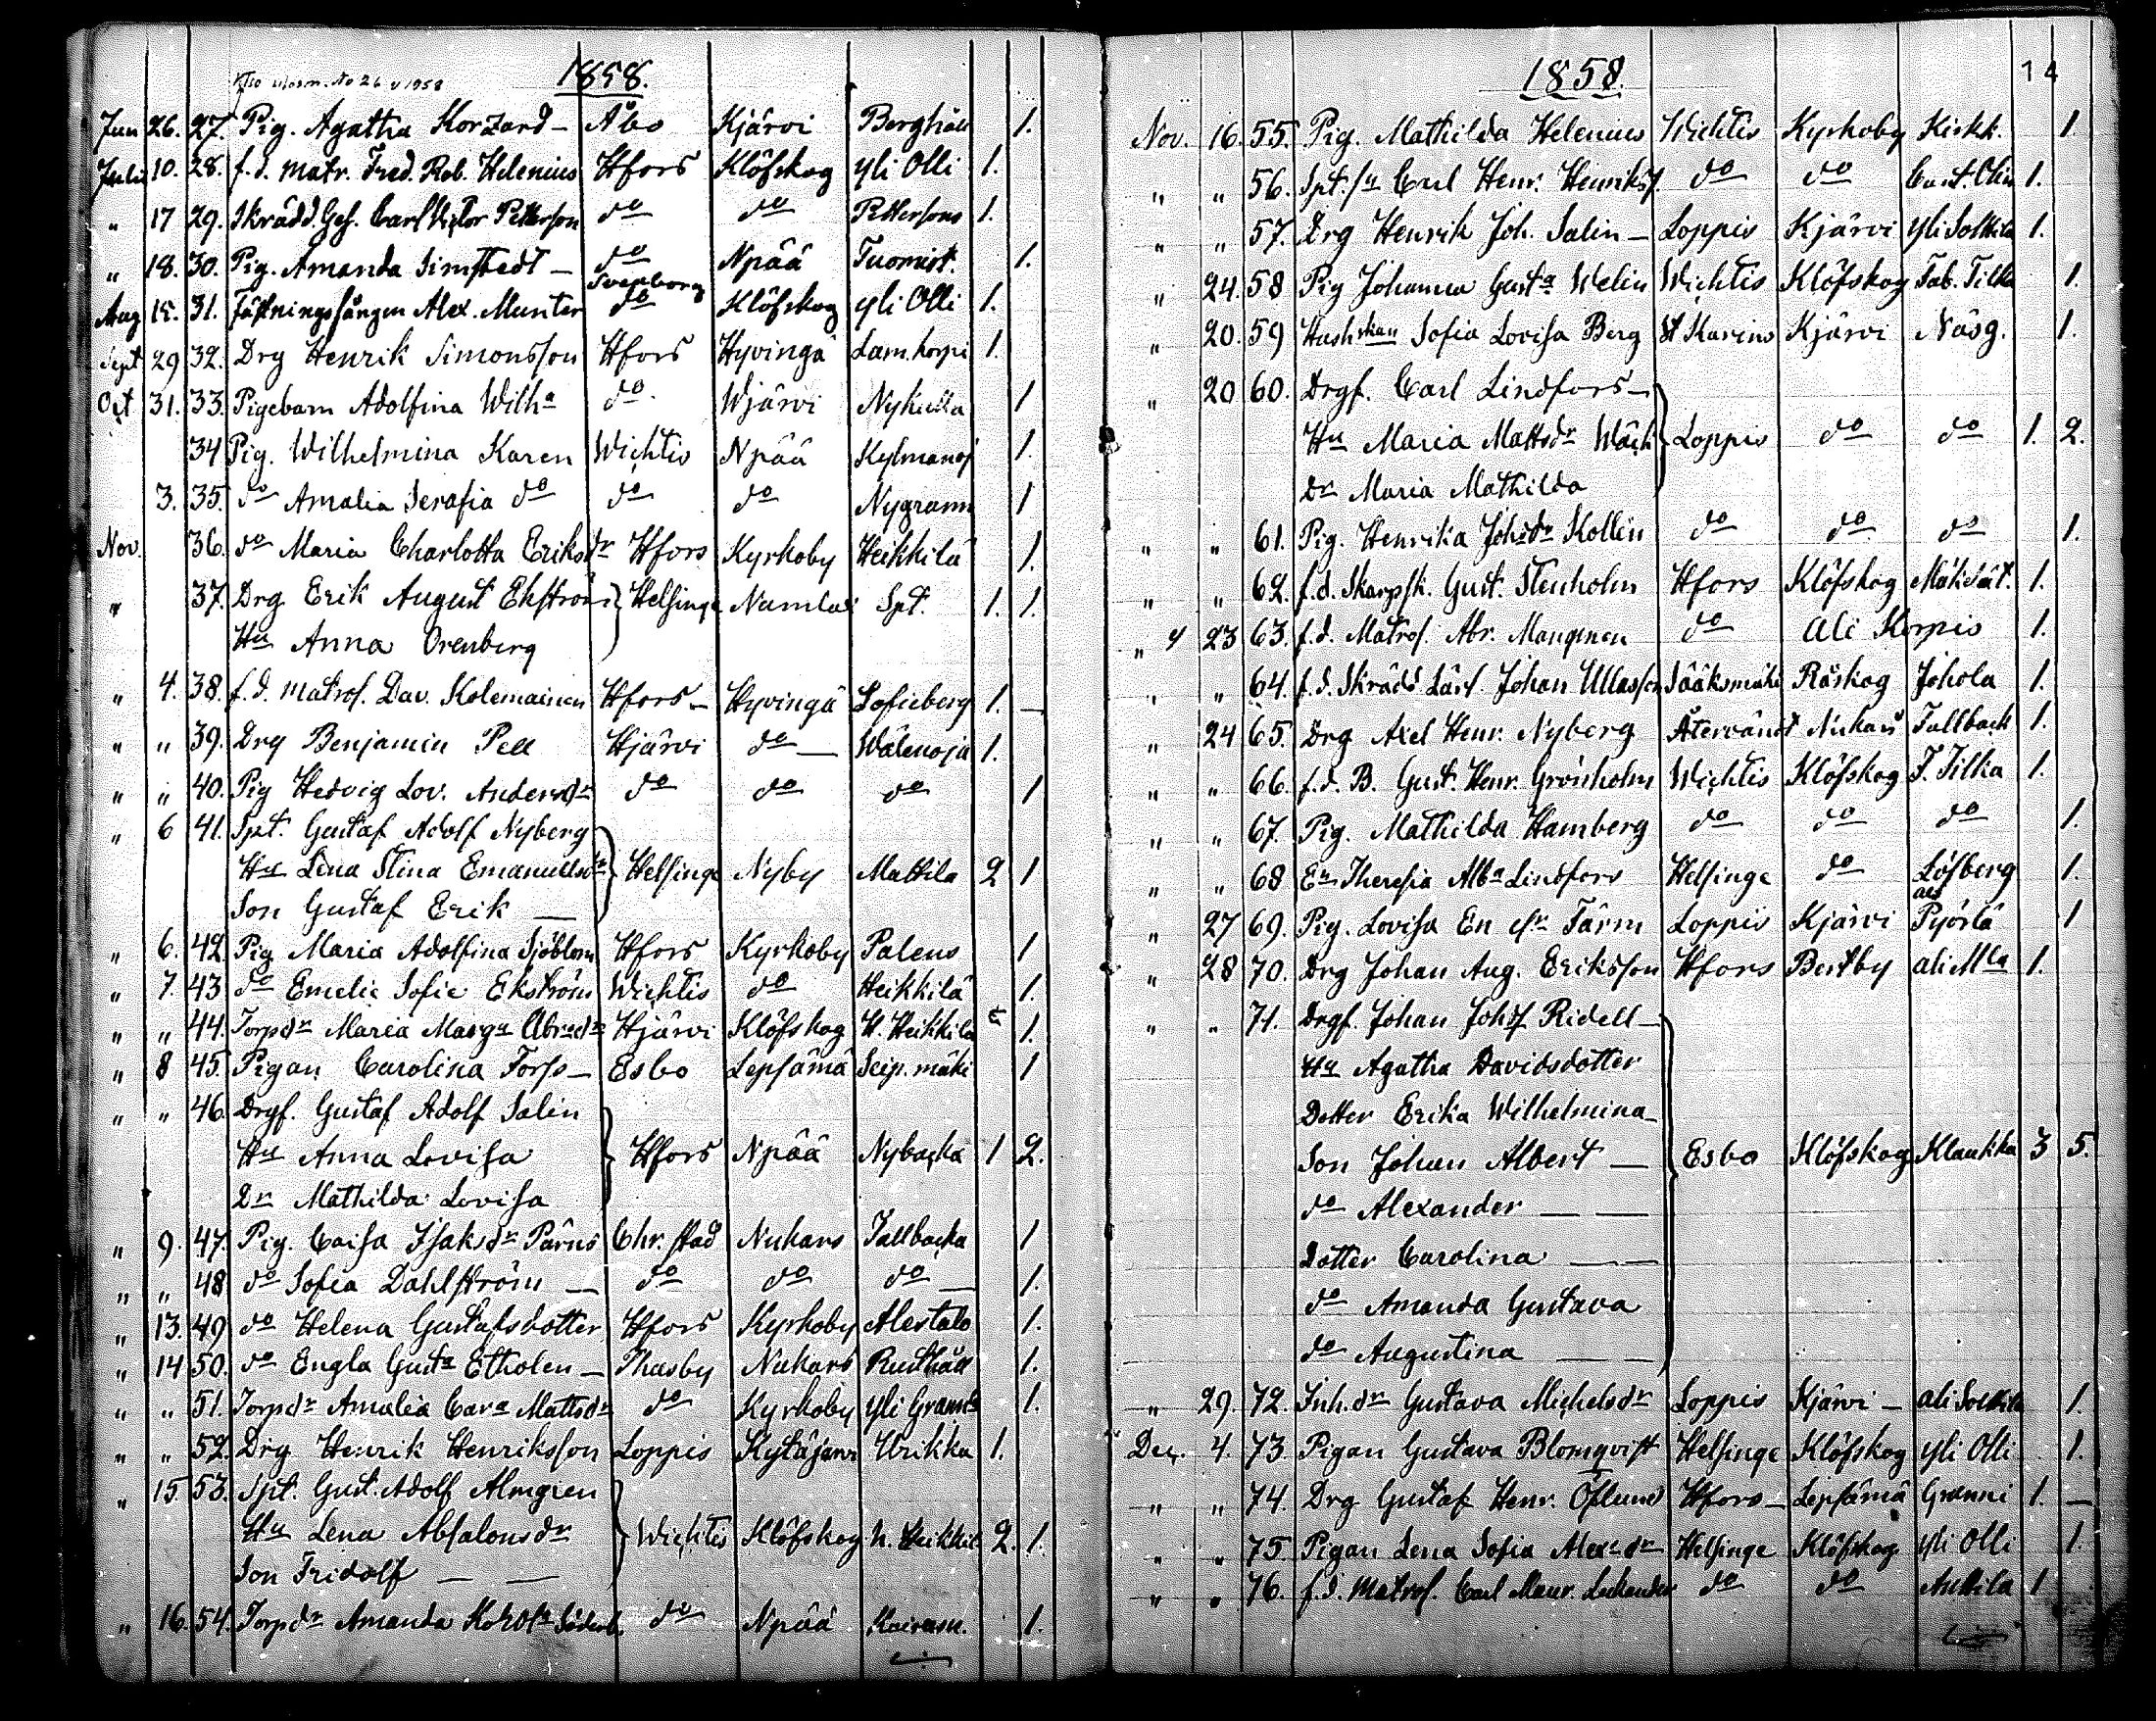 1858.
Jun 26. 27. Pig. Agatha Korzard — Åbo Kjärvi Berghäll 1.
Julii 10. 28. f.d. matr. Fred. Rob. Helenius Hfors Klöfskog yli Olli 1.
" 17 29. Skrädd. Ges. Carl Victor Petterson do do Pettersons 1.
" 18. 30. Pig. Amanda Simstedt — do Npää Tuomist. 1.
Sveaborg
Aug 15. 31. Fästningsfången Alex. Munter do Klöfskog yli Olli 1.
Sept 29 32. Drg Henrik Simonsson Hfors Hyvingä Lam.korpi 1.
Oct 31. 33. Pigebarn Adolfina Wilha do. Wjärvi Nykulla 1
34 Pig. Wilhelmina Karen Wichtis Npää 1.
3. 35. do Amalia Serafia do do do Nygrann 1
Nov. 36. do Maria Charlotta Eriksdr Hfors Kyrkoby Heikkilä 1.
" 37. Drg Erik August Ekström Helsinge Numlax Spt. 1. 1.
Hu Anna Orenberg
" 4. 38. f.d. matros. Dav. Kolemainen Hfors — Hyvingä Sofieberg 1. —
" " 39. Drg Benjamin Pell Hjärvi do — Wälenoja 1.
" " 40. Pig Hedvig Lov. Andersdr do do do 1
" 6 41. Spt. Gustaf Adolf Nyberg
Hu Lena Stina Emanuelsdr Helsinge Nyby Mattila 2 1
Son Gustaf Erik —
" 6. 42. Pig Maria Adolfina Sjöblom Hfors Kyrkoby Palens 1
" 7. 43 do Emelie Sofie Ekström Wichtis do Heikkilä 1.
" " 44. Torpdr Maria Marga Abrsdr Hjärvi Klöfskog H. Heikkilä 1.
" 8 45. Pigan Carolina Forss — Esbo Lepsämä Seip. mäki 1
" " 46. Drgf. Gustaf Adolf Salin
Hu Anna Lovisa Hfors Npää Nybacka 1 2.
Dr Mathilda Lovisa
" 9. 47. Pig. Caisa Isaksdr Pärus Chr. stad Nukars Tallbacka 1
" " 48 do Sofia Dahlström — do do do — 1.
" 13. 49 do Helena Gustafsdotter Hfors Kyrkoby Alestalo 1.
" 14 50. do Engla Gusta Etholen — Thusby Nukars Rusthåll 1.
" " 51. Torpdr Amalia Cara Mattsdr do Kyrkoby yli Granni 1.
" " 52. Drg Henrik Henriksson Loppis Kytäjärvi Urikka 1.
" 15 53. Spt. Gust. Adolf Almgren
Hu Lena Absalonsdr Wichtis Klöfskog N. Heikkil 2. 1.
Son Fridolf — —
" 16. 54. Torpdr Amanda do Npää 1.
1858.
14
Nov. 16. 55. Pig. Mathilda Helenius Wichtis Kyrkoby Kirkk. 1.
" " 56. Spt. sn Carl Henr. Henrikss. do do 1.
" " 57. Drg Henrik Joh. Salin — Loppis Kjärvi yli Solttila 1.
" 24. 58 Pig Johanna Gusta Welin Wichtis Klöfskog Tab. Tilka 1.
" 20. 59 Hushskan Sofia Lovisa Berg St Karins Kjärvi Näsg. 1.
" 20 60. Drgf. Carl Lindfors —
Hu Maria Mattsdr Wäck Loppis do do 1. 2.
Dr Maria Mathilda
" " 61. Pig. Henrika Johsdr Kollin do do do 1.
" " 62. f.d. Skarpsk. Gust. Stenholm Hfors Klöfskog 1.
" 23 63. f.d. Matros. Abr. Manginen do Ali Korpis 1.
" " 64. f.d. Skrädd Lärl. Johan Ullasson Sääksmäki Råskog Johola 1.
" 24 65. Drg Axel Henr. Nyberg Återvändt Nukars Tallback 1.
" " 66. f.d. B. Gust. Henr. Grönholm Wichtis Klöfskog T. Tilka 1.
" " 67. Pig. Mathilda Hamberg do do do 1.
" " 68 En Theresia Alba Lindfors Helsinge do Löfberg 1.
" 27 69. Pig. Lovisa Färm Loppis Kjärvi Pyörlä 1
" 28 70. Drg Johan Aug. Eriksson Hfors Bertby ali Mla 1.
" " 71. Drgf. Johan Johss Ridell —
Hu Agatha Davidsdotter
Dotter Erika Wilhelmina —
Son Johan Albert — Esbo Klöfskog Klaukka 3 5.
do Alexander — —
Dotter Carolina — —
do Amanda Gustava
do Augustina — —
" 29. 72. Inh.dr Gustava Michelsdr Loppis Kjärvi — ali Solttila 1.
Dec. 4. 73. Pigan Gustava Blomqvist Helsinge Klöfskog yli Olli 1.
" " 74. Drg Gustaf Henr. Öflund Hfors — Lepsämä Granni 1. —
" " 75. Pigan Lena Sofia Alexdr Helsinge Klöfskog yli Olli 1.
" " 76. f.d. Matros. Carl Maur. do do Anttila 1